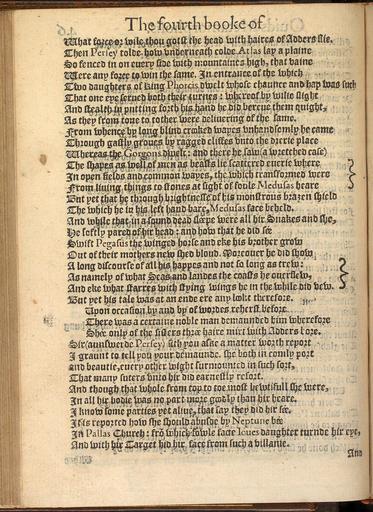 The fourth booke of
What force or wile thou gotst the head with haires of Adders slie.
Then Persey tolde how underneath colde Atlas lay a plaine
So fenced in on every side with mountaines high, that vaine
Were any force to win the same. In entrance of the which
Two daughters of king Phorcis dwelt whose chaunce and hap was such
That one eye served both their turnes: whereof by wilie slight
And stealth in putting forth his hand he did bereve them quight,
As they from tone to tother were delivering of the same.
From whence by long blind croked wayes unhandsomly he came
Through gastly groves by ragged cliffes unto the drerie place
Whereas the Gorgons dwelt: and there he saw (a wretched case)
The shapes as well of men as beasts lie scattered everie where
In open fields and common wayes, the which transformed were
From living things to stones at sight of foule Medusas heare
But yet that he through brightnesse of his monstrous brazen shield
The which he in his left hand bare, Medusas face beheld.
And while that in a sound dead sleepe were all hir Snakes and she,
He softly pared of her head: and how that he did see
Swift Pegasus the winged horse and eke his brother grow
Out of their mothers new shed blood. Moreover he did show
A long discourse of all his happes and not so long as trew:
As namely of what Seas and landes the coasts he overflew,
And eke what starres with stying wings he in the while did vew.
But yet his tale was at an ende ere any lokt therefore.
Upon occasion by and by of wordes reherst before
There was a certaine noble man demaunded him wherefore
Shee only of the sisters three haire mixt with Adders bore.
Sir (aunswerde Persey) sith you aske a matter worth report
I graunt to tell you your demaunde. she both in comly port
and beautie, every other wight surmounted in such sort,
That many suters unto hir did earnestly resort.
And though that whole from top to toe most bewtifull she were,
In all hir bodie was no part more goodly than hir heare.
I know some parties yet alive, that say they did hir see.
It is reported how she should abusde by Neptune bee
In Pallas Church: frō which fowle facte Joves daughter turnde hir eye,
And with hir Target hid hir face from such a villanie.
And